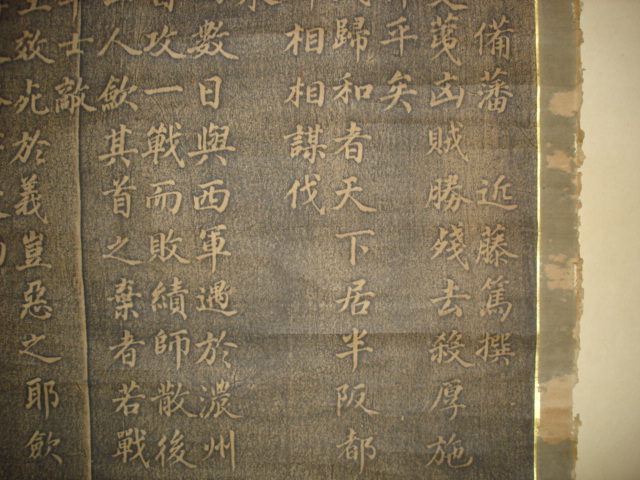 備藩 近藤篤撰
凶賊勝殘去殺厚施
平矣
歸和者天下居半阪都
相相謀伐
數日與西軍遇於濃州
攻一戰而敗績師散後
人歛其首之棄者若戰
士敵
效死於義豈惡之耶歛